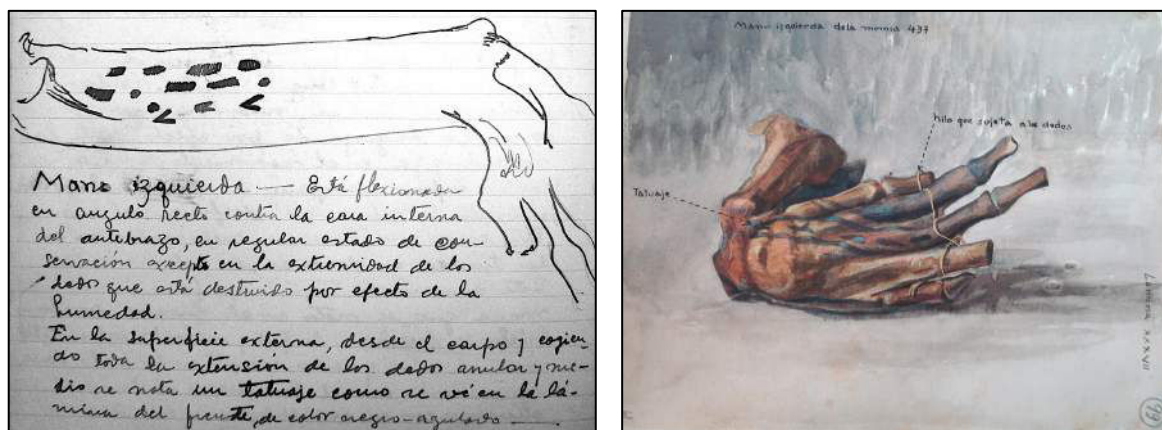 Mano izquierda — Está flexionada
en angulo recto contra la cara interna
del antebrazo, en regular estado de con-
servación excepto en la extremidad de los
dedos que está destruido por efecto de la
humedad.
En la superficie externa, desde el carpo y cogien-
do toda la extensión de los dedos anular y me-
dio se nota un tatuaje como se vé en la lá-
mina del frente, de color negro-azulado —
Mano izquierda de la momia 437
hilo que sujeta a los dedos
Tatuaje
Lamina XXXVII
99